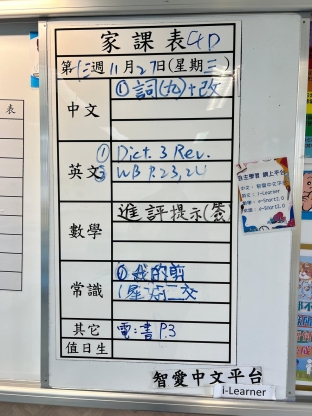 家課表 4D
第十三週 11月27日(星期三)
中文 ① 詞(九)+改
英文 ① Dict. 3 Rev.
② WB P.23, 24
數學 進評提示(簽)
常識 ① 我的剪
(星期二交
其它 電:書 P.3
值日生
自主學習 網上平台
中文:智愛中文平台
智愛中文平台
i-Learner
表